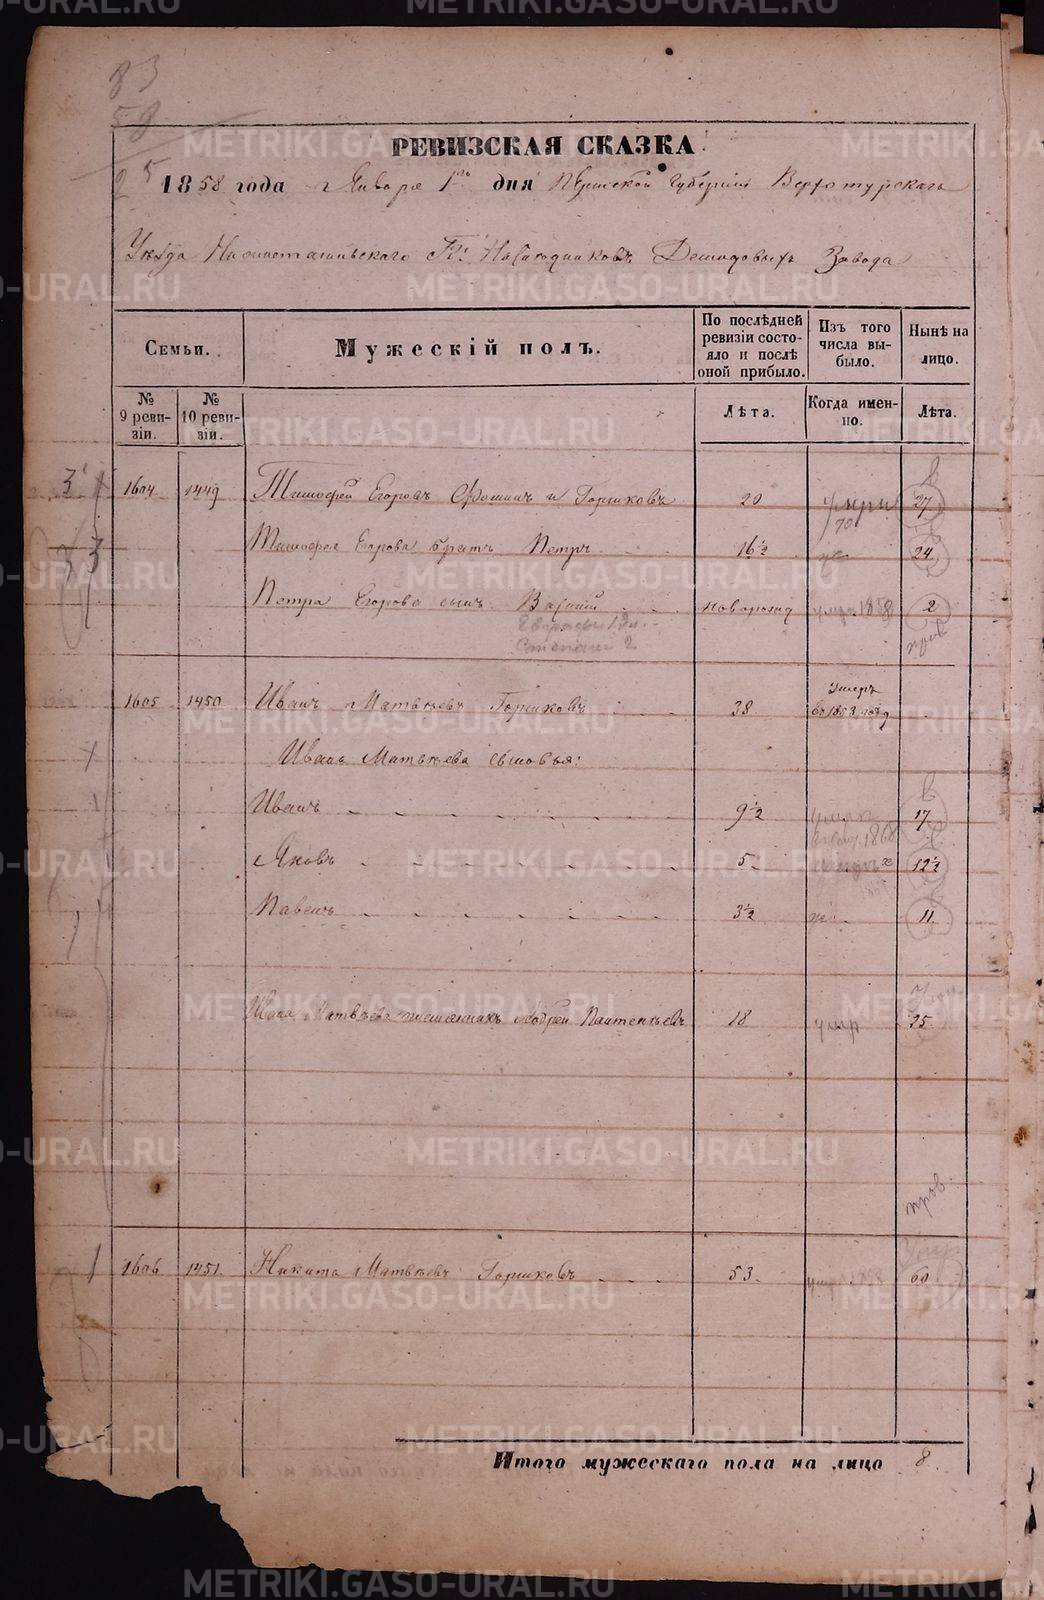 83
58
25
РЕВИЗСКАЯ СКАЗКА
1858 года Января 1го дня Пермской Губернии Верхотурскаго
Уѣзда Нижнетагильскаго Гг. Наслѣдниковъ Демидовыхъ Завода
Семьи.
Мужескій полъ.
По послѣдней ревизіи состояло и послѣ оной прибыло.
Изъ того числа выбыло.
Нынѣ на лицо.
№ 9 ревизіи.
№ 10 ревизіи.
Лѣта.
Когда именно.
Лѣта.
3 1604 1449 Тимофей Егоровъ Фоминъ и Горшковъ 20 умри 70 27
3 Тимофея Егорова братъ Петръ 16½ 24
Петра Егорова сынъ Василий новорожд умри 1858 2
Степанъ 2 пров
1605 1450 Иванъ Матвѣевъ Горшковъ 38 Умеръ въ 1853 году
Ивана Матвѣева сыновья:
Иванъ 9½ 1868 17
Яковъ 5 12½
Павелъ 3½ 11
Ивана Матвѣева племянникъ Андрей Пантелѣевъ 18 умр 25
пров
1 1606 1451 Никита Матвѣевъ Горшковъ 53 60
Итого мужескаго пола на лицо 8
METRIKI.GASO-URAL.RU